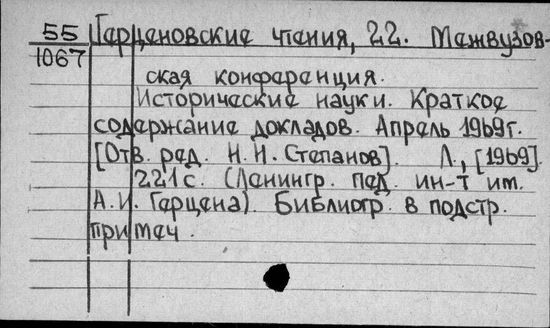 55 Герценовские чтения, 22. Межвузов-
1067
ская конференция.
Исторические науки. Краткое
содержание докладов. Апрель 1969г.
[Отв. ред. Н.Н. Степанов]. Л., [1969].
221с. (Ленингр. пед. ин-т им.
А.И. Герцена). Библиогр. в подстр.
примеч.